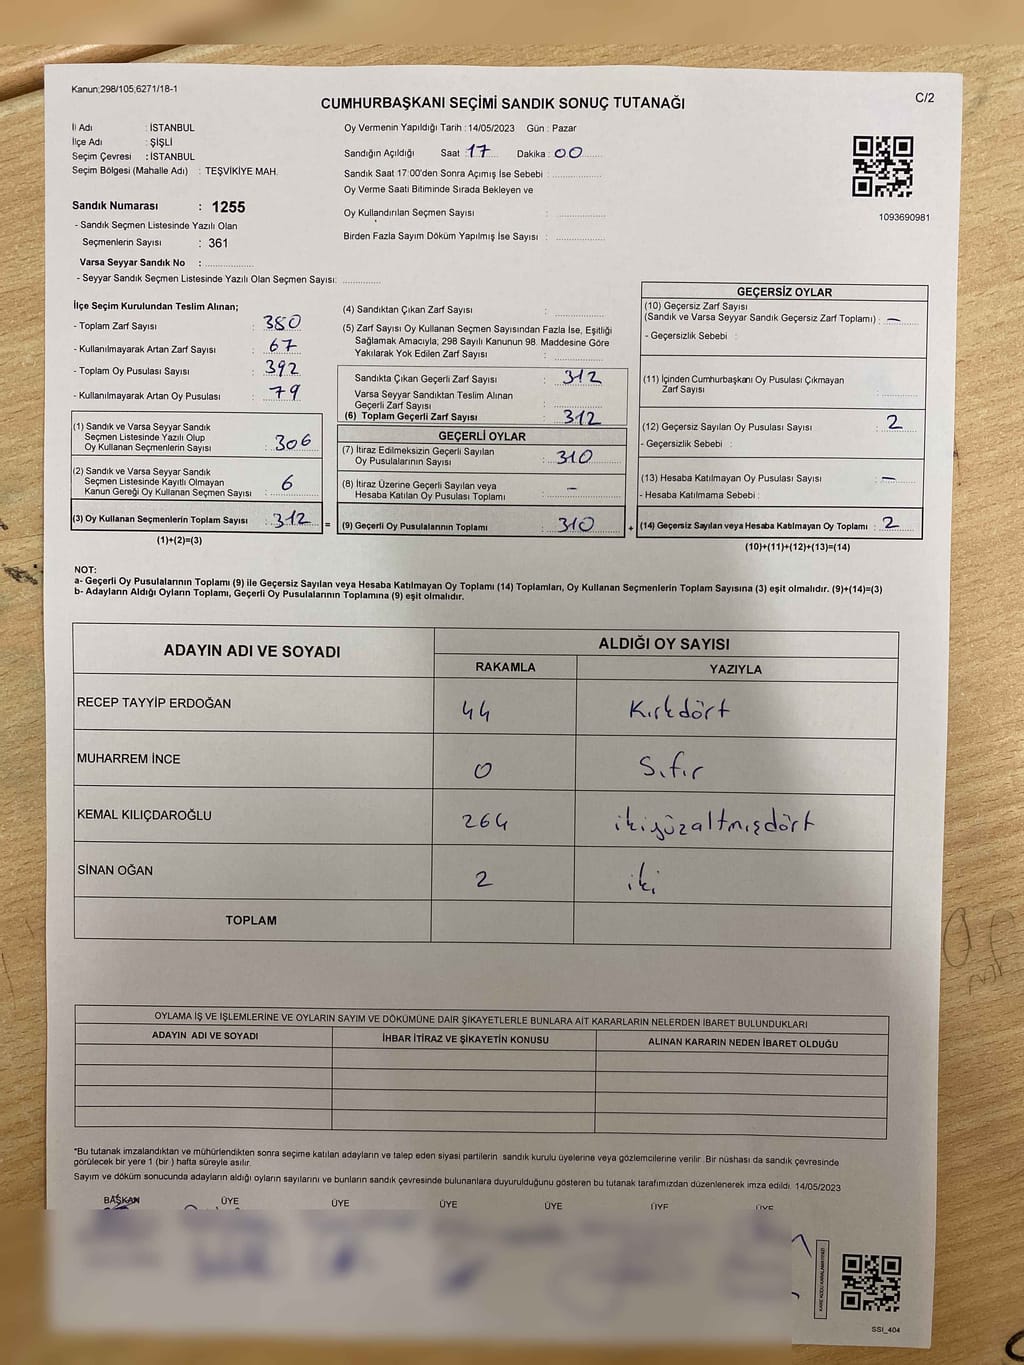 Kanun;298/105,6271/18-1
CUMHURBAŞKANI SEÇİMİ SANDIK SONUÇ TUTANAĞI
C/2
İl Adı : İSTANBUL
İlçe Adı : ŞİŞLİ
Seçim Çevresi : İSTANBUL
Seçim Bölgesi (Mahalle Adı) : TEŞVİKİYE MAH.
Sandık Numarası : 1255
- Sandık Seçmen Listesinde Yazılı Olan
Seçmenlerin Sayısı : 361
Varsa Seyyar Sandık No :
- Seyyar Sandık Seçmen Listesinde Yazılı Olan Seçmen Sayısı:
Oy Vermenin Yapıldığı Tarih : 14/05/2023 Gün : Pazar
Sandığın Açıldığı Saat : 17 Dakika : 00
Sandık Saat 17:00'den Sonra Açımış İse Sebebi :
Oy Verme Saati Bitiminde Sırada Bekleyen ve
Oy Kullandırılan Seçmen Sayısı :
Birden Fazla Sayım Döküm Yapılmış İse Sayısı :
1093690981
İlçe Seçim Kurulundan Teslim Alınan;
- Toplam Zarf Sayısı : 380
- Kullanılmayarak Artan Zarf Sayısı : 67
- Toplam Oy Pusulası Sayısı : 392
- Kullanılmayarak Artan Oy Pusulası : 79
(1) Sandık ve Varsa Seyyar Sandık
Seçmen Listesinde Yazılı Olup
Oy Kullanan Seçmenlerin Sayısı : 306
(2) Sandık ve Varsa Seyyar Sandık
Seçmen Listesinde Kayıtlı Olmayan
Kanun Gereği Oy Kullanan Seçmen Sayısı : 6
(3) Oy Kullanan Seçmenlerin Toplam Sayısı : 312 =
(1)+(2)=(3)
(4) Sandıktan Çıkan Zarf Sayısı :
(5) Zarf Sayısı Oy Kullanan Seçmen Sayısından Fazla İse, Eşitliği
Sağlamak Amacıyla, 298 Sayılı Kanunun 98. Maddesine Göre
Yakılarak Yok Edilen Zarf Sayısı :
Sandıkta Çıkan Geçerli Zarf Sayısı : 312
Varsa Seyyar Sandıktan Teslim Alınan
Geçerli Zarf Sayısı :
(6) Toplam Geçerli Zarf Sayısı : 312
GEÇERLİ OYLAR
(7) İtiraz Edilmeksizin Geçerli Sayılan
Oy Pusulalarının Sayısı : 310
(8) İtiraz Üzerine Geçerli Sayılan veya
Hesaba Katılan Oy Pusulası Toplamı : –
(9) Geçerli Oy Pusulalarının Toplamı : 310 +
GEÇERSİZ OYLAR
(10) Geçersiz Zarf Sayısı
(Sandık ve Varsa Seyyar Sandık Geçersiz Zarf Toplamı) : –
- Geçersizlik Sebebi :
(11) İçinden Cumhurbaşkanı Oy Pusulası Çıkmayan
Zarf Sayısı :
(12) Geçersiz Sayılan Oy Pusulası Sayısı : 2
- Geçersizlik Sebebi :
(13) Hesaba Katılmayan Oy Pusulası Sayısı : –
- Hesaba Katılmama Sebebi :
(14) Geçersiz Sayılan veya Hesaba Katılmayan Oy Toplamı : 2
(10)+(11)+(12)+(13)=(14)
NOT:
a- Geçerli Oy Pusulalarının Toplamı (9) ile Geçersiz Sayılan veya Hesaba Katılmayan Oy Toplamı (14) Toplamları, Oy Kullanan Seçmenlerin Toplam Sayısına (3) eşit olmalıdır. (9)+(14)=(3)
b- Adayların Aldığı Oyların Toplamı, Geçerli Oy Pusulalarının Toplamına (9) eşit olmalıdır.
ADAYIN ADI VE SOYADI
ALDIĞI OY SAYISI
RAKAMLA YAZIYLA
RECEP TAYYİP ERDOĞAN 44 Kırkdört
MUHARREM İNCE 0 Sıfır
KEMAL KILIÇDAROĞLU 264 ikiyüzaltmışdört
SİNAN OĞAN 2 iki
TOPLAM
OYLAMA İŞ VE İŞLEMLERİNE VE OYLARIN SAYIM VE DÖKÜMÜNE DAİR ŞİKAYETLERLE BUNLARA AİT KARARLARIN NELERDEN İBARET BULUNDUKLARI
ADAYIN ADI VE SOYADI İHBAR İTİRAZ VE ŞİKAYETİN KONUSU ALINAN KARARIN NEDEN İBARET OLDUĞU
*Bu tutanak imzalandıktan ve mühürlendikten sonra seçime katılan adayların ve talep eden siyasi partilerin sandık kurulu üyelerine veya gözlemcilerine verilir. Bir nüshası da sandık çevresinde
görülecek bir yere 1 (bir ) hafta süreyle asılır.
Sayım ve döküm sonucunda adayların aldığı oyların sayılarını ve bunların sandık çevresinde bulunanlara duyurulduğunu gösteren bu tutanak tarafımızdan düzenlenerek imza edildi. 14/05/2023
BAŞKAN ÜYE ÜYE ÜYE ÜYE ÜYE ÜYE
SSI_404